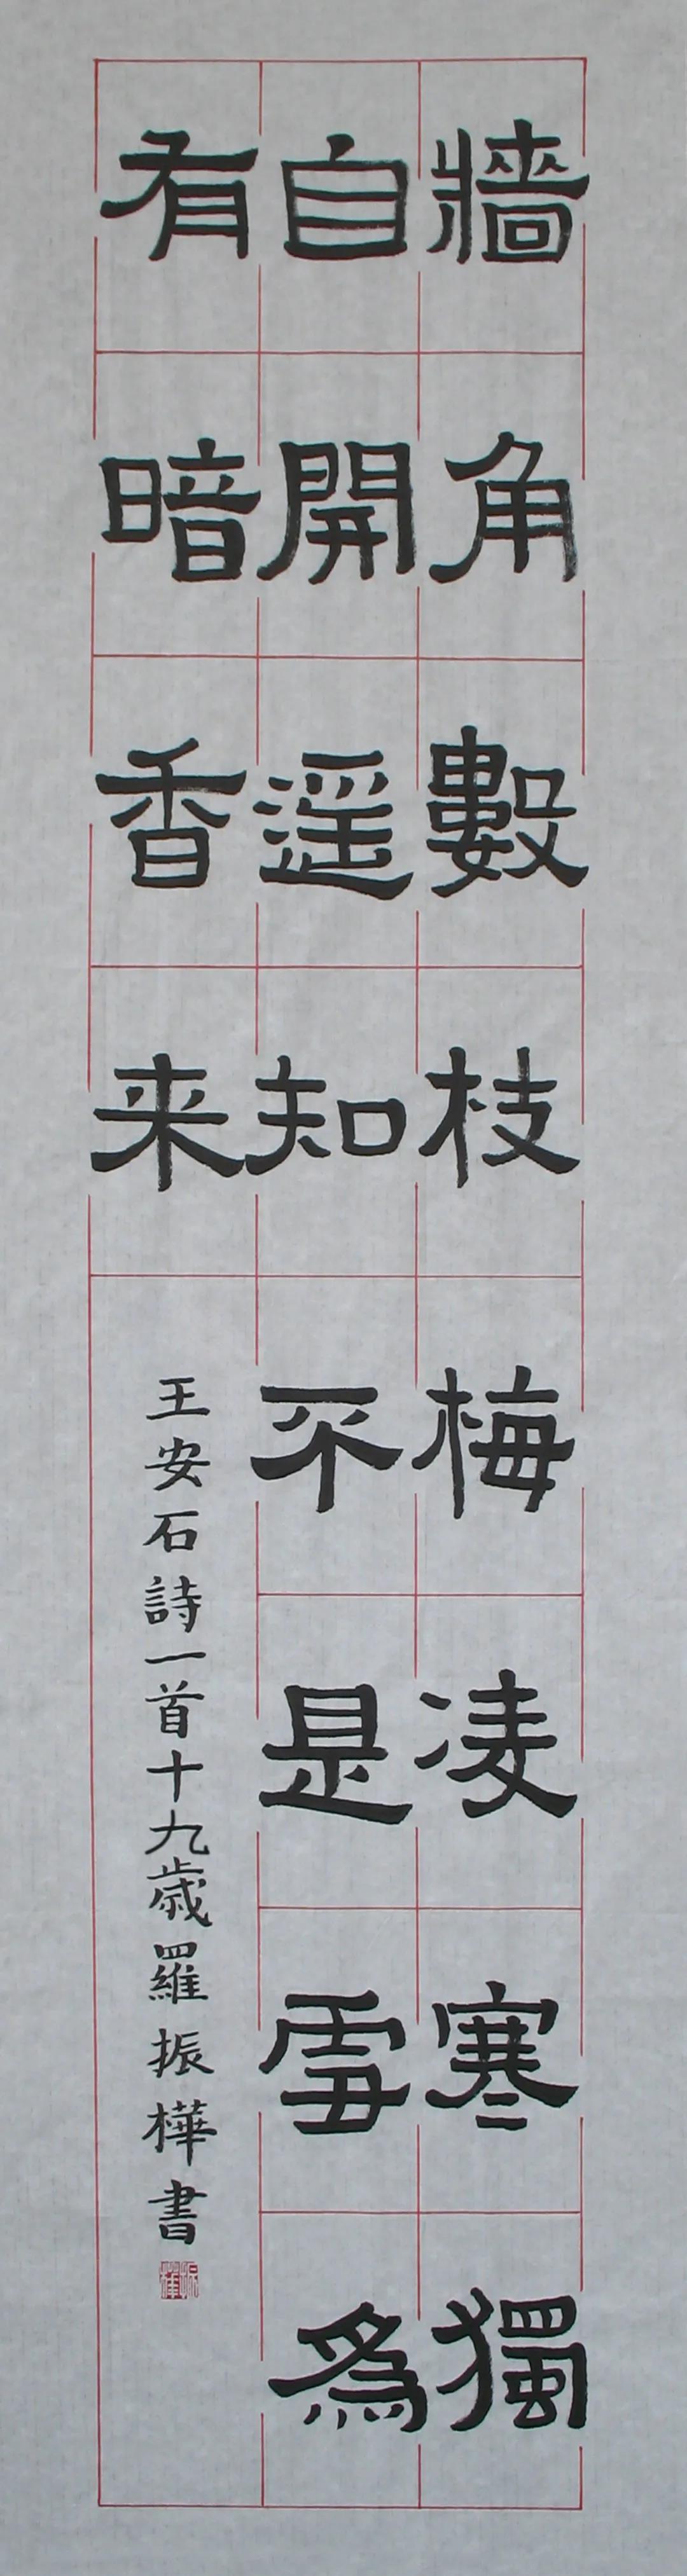 牆角數枝梅凌寒獨
自開遥知不是雪為
有暗香来
王安石詩一首十九歲羅振樺書